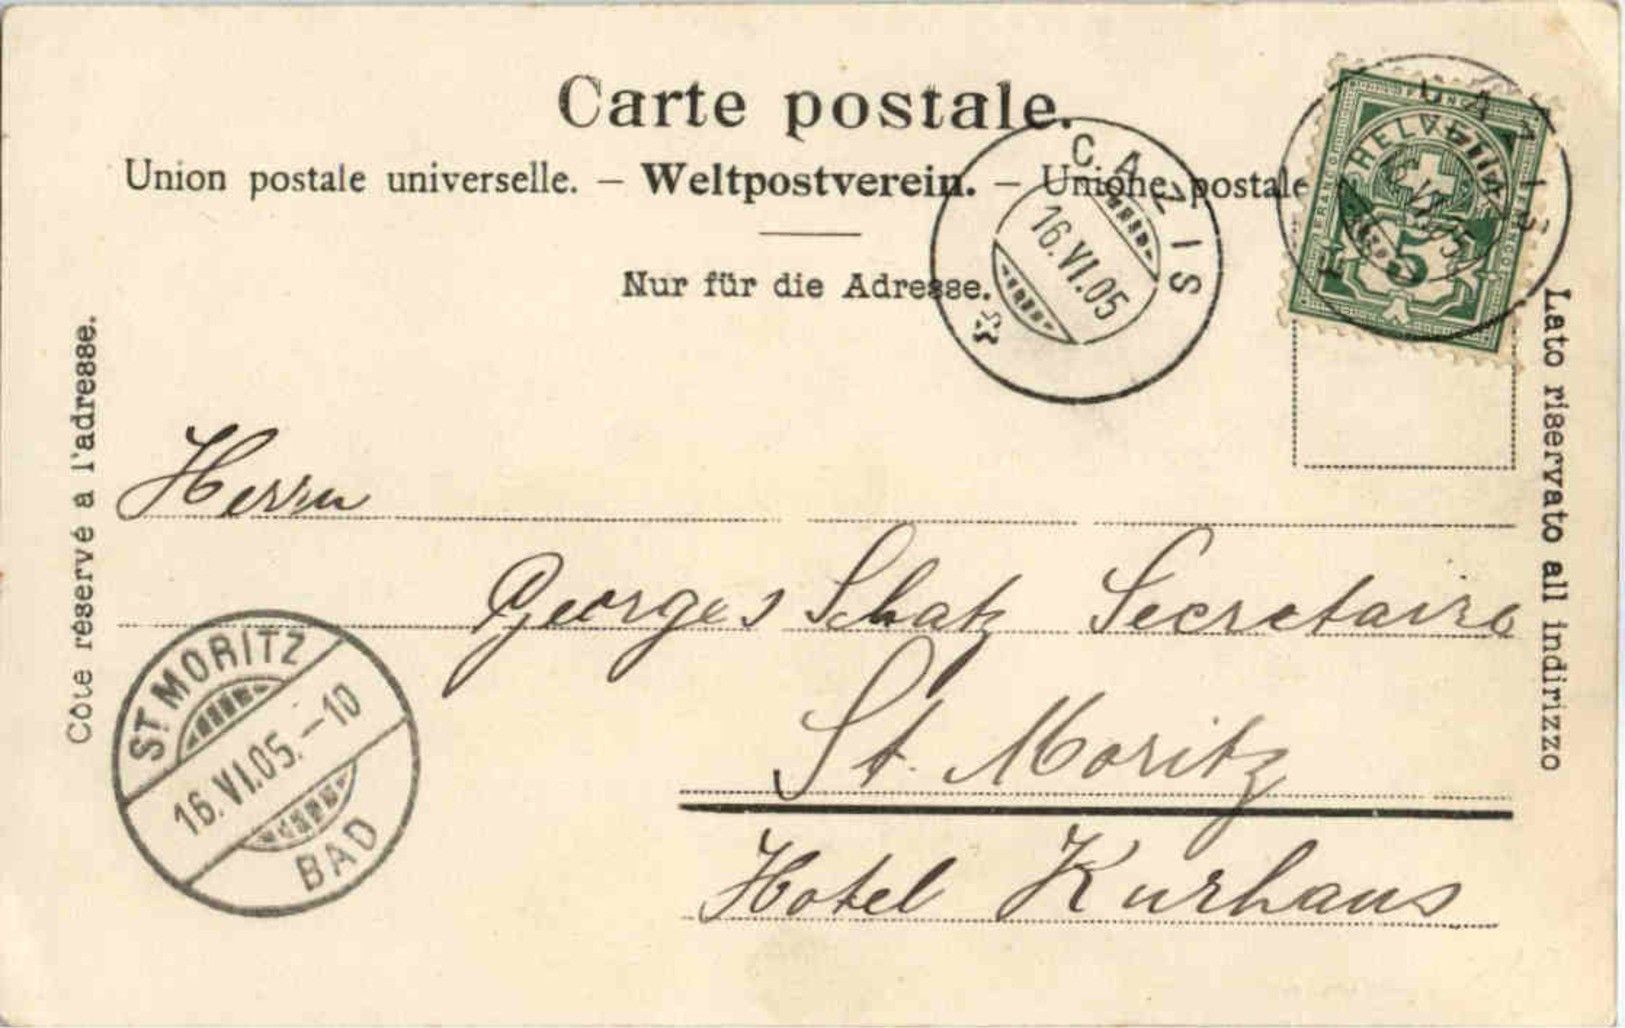 Carte postale.
Union postale universelle. — Weltpostverein. — Unione postale
Nur für die Adresse.
CAZIS
16.VI.05
CAZIS
16.VI.05
FRANCO
HELVETIA
5
Côté réservé à l'adresse.
Lato riservato all indirizzo
Herrn
Georges Schatz Secretaire
St. Moritz
Hotel Kurhaus
ST MORITZ
16.VI.05.–10
BAD